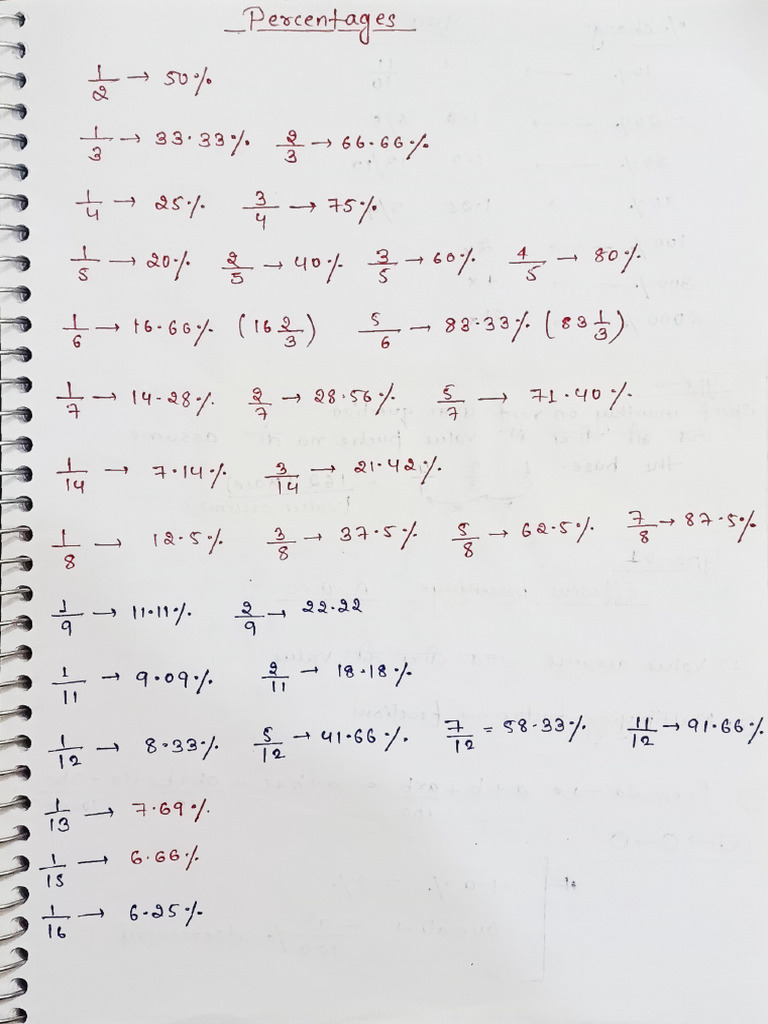 Percentages
1/2 → 50%
1/3 → 33.33% 2/3 → 66.66%
1/4 → 25% 3/4 → 75%
1/5 → 20% 2/5 → 40% 3/5 → 60% 4/5 → 80%
1/6 → 16.66% (16 2/3) 5/6 → 83.33% (83 1/3)
1/7 → 14.28% 2/7 → 28.56% 5/7 → 71.40%
1/14 → 7.14% 3/14 → 21.42%
1/8 → 12.5% 3/8 → 37.5% 5/8 → 62.5% 7/8 → 87.5%
1/9 → 11.11% 2/9 → 22.22
1/11 → 9.09% 2/11 → 18.18%
1/12 → 8.33% 5/12 → 41.66% 7/12 = 58.33% 11/12 → 91.66%
1/13 → 7.69%
1/15 → 6.66%
1/16 → 6.25%